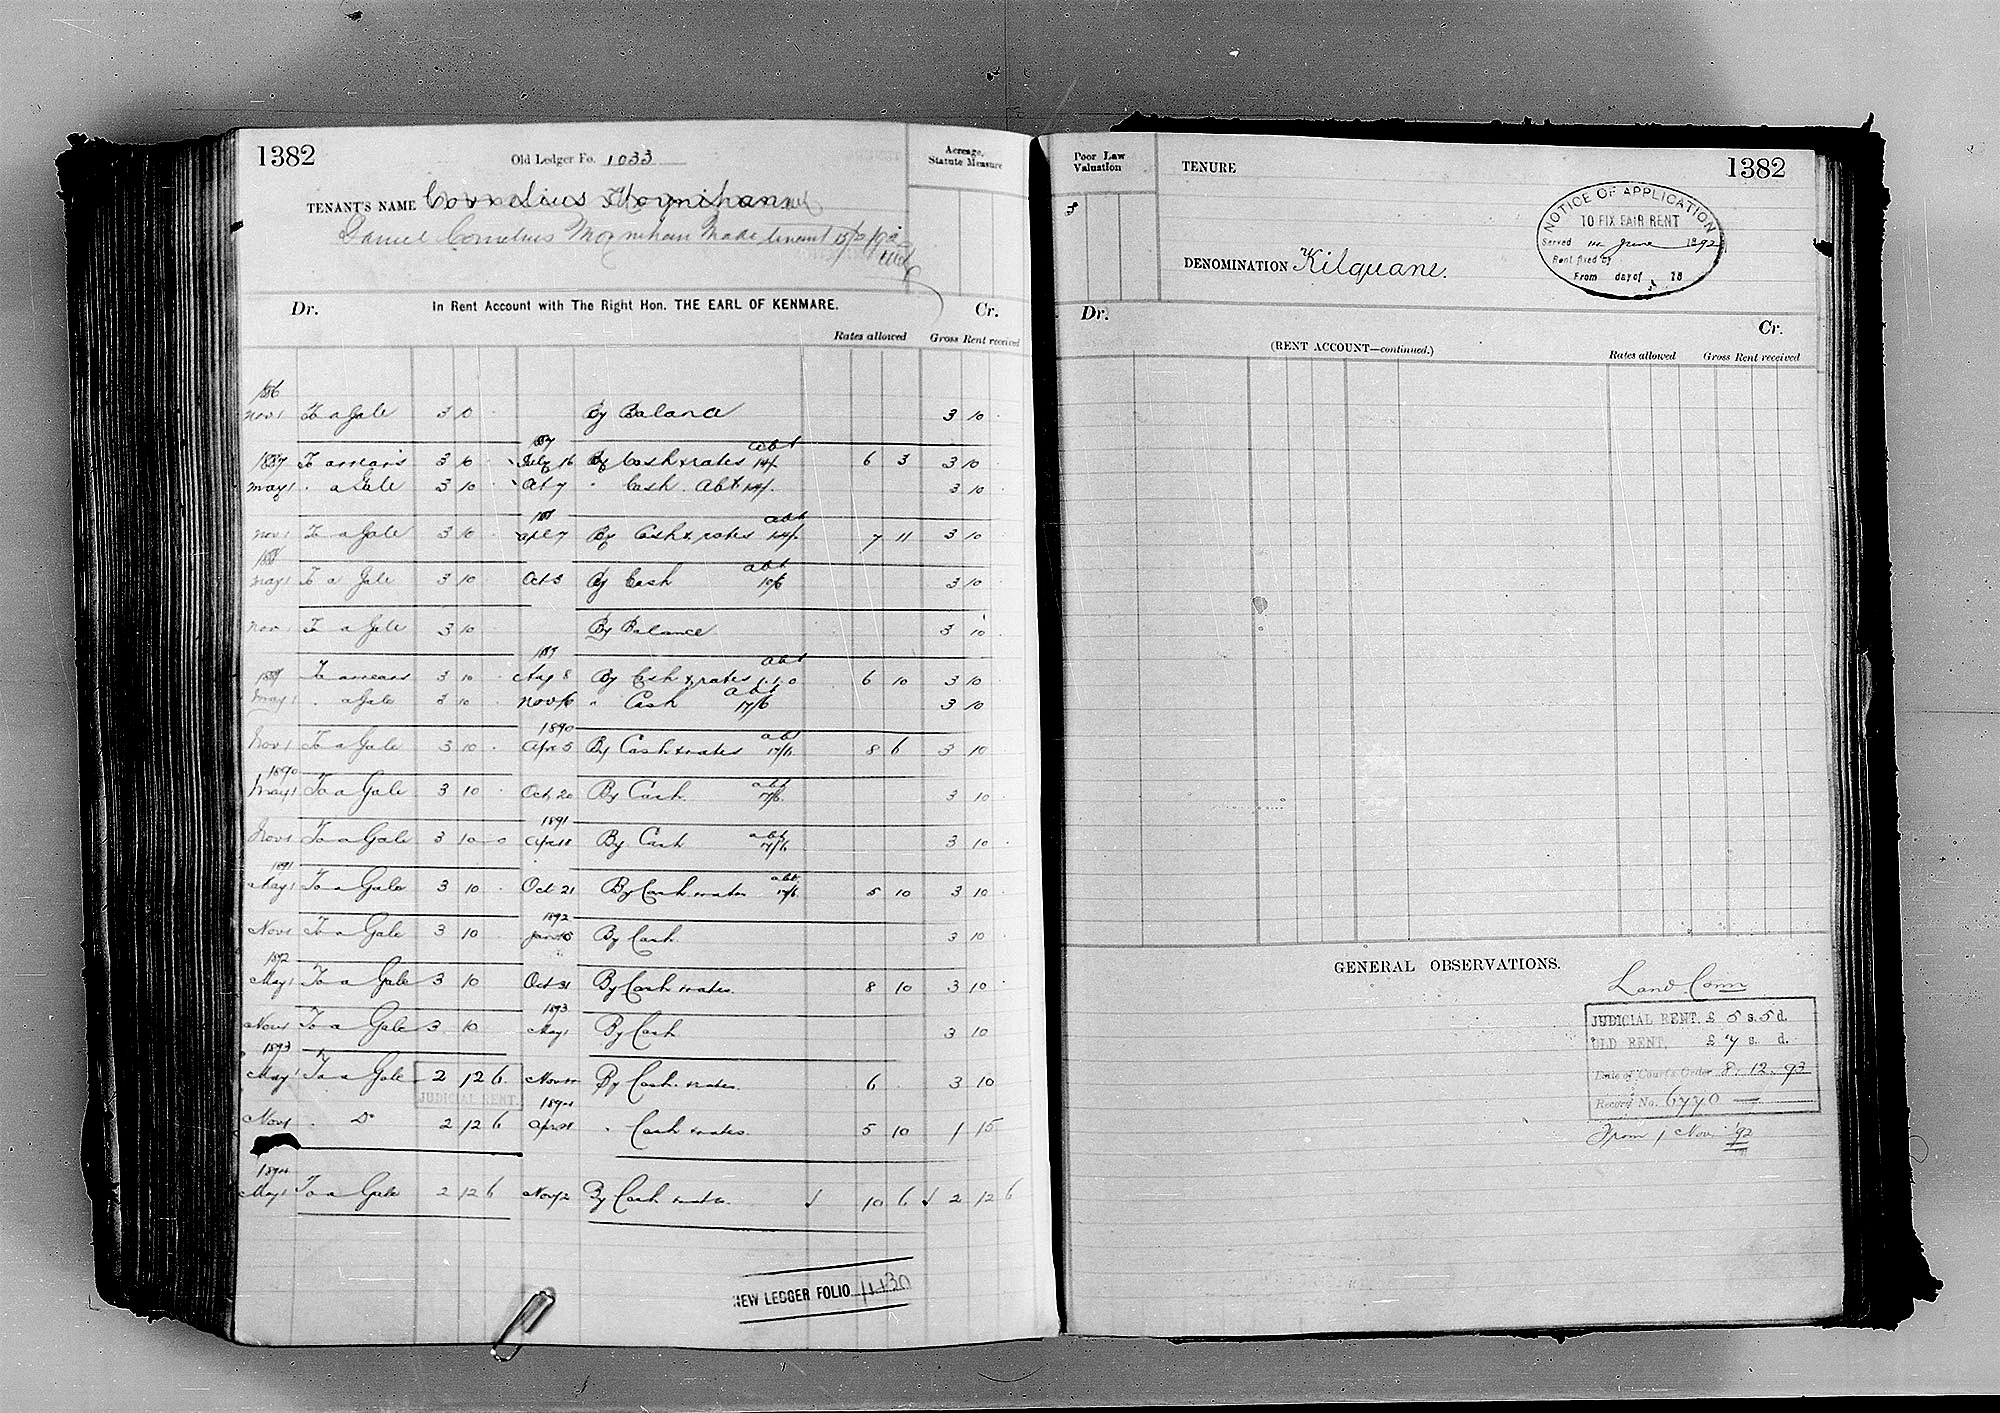 1382
Old Ledger Fo. 1033
Acreage, Statute Measure
TENANT'S NAME Cornelius Moynihan
Daniel Cornelius Moynihan Made tenant
Dr. In Rent Account with The Right Hon. THE EARL OF KENMARE. Cr.
Rates allowed Gross Rent received
1886
Nov 1 To a Gale 3 10 By Balance 3 10
1887 abt
1887 To arrears 3 10 July 16 By Cash & rates 14/ 6 3 3 10
May 1 " a Gale 3 10 Oct 7 " Cash Abt 14/. 3 10
abt
Nov 1 To a Gale 3 10 Apl 7 By Cash & rates 14/. 7 11 3 10
1888 abt
May 1 To a Gale 3 10 Oct 3 By Cash 10/6 3 10
Nov 1 To a Gale 3 10 By Balance 3 10
1889 abt
1889 To arrears 3 10 Aug 8 By Cash & rates 1.1.0 6 10 3 10
May 1 " a Gale 3 10 Nov 16 " Cash abt 17/6 3 10
1890 abt
Nov 1 To a Gale 3 10 Apr 5 By Cash & rates 17/6 8 6 3 10
1890 abt
May 1 To a Gale 3 10 Oct 20 By Cash 17/6 3 10
1891 abt
Nov 1 To a Gale 3 10 0 Apr 18 By Cash 17/6 3 10
1891 abt
May 1 To a Gale 3 10 Oct 21 By Cash & rates 17/6 5 10 3 10
1892
Nov 1 To a Gale 3 10 Jan 15 By Cash 3 10
1892
May 1 To a Gale 3 10 Oct 31 By Cash & rates. 8 10 3 10
1893
Nov 1 To a Gale 3 10 May 1 By Cash 3 10
1893
May 1 To a Gale 2 12 6 Nov By Cash & rates. 6 3 10
JUDICIAL RENT. 1894
Nov 1 " Do 2 12 6 Apr " Cash & rates. 5 10 1 15
1894
May 1 To a Gale 2 12 6 Nov 12 By Cash & rates. 10 6 2 12 6
NEW LEDGER FOLIO 1430
Poor Law Valuation
TENURE
1382
NOTICE OF APPLICATION
TO FIX FAIR RENT
Served June 1892
Rent fixed by
From day of 18
DENOMINATION Kilquane.
Dr. Cr.
(RENT ACCOUNT—continued.)
Rates allowed Gross Rent received
GENERAL OBSERVATIONS.
Land Com
JUDICIAL RENT, £ 5 s. 5 d.
OLD RENT, £ 7 s. d.
Date of Court's Order 8.12.93
Record No. 6770
From 1 Nov. '92